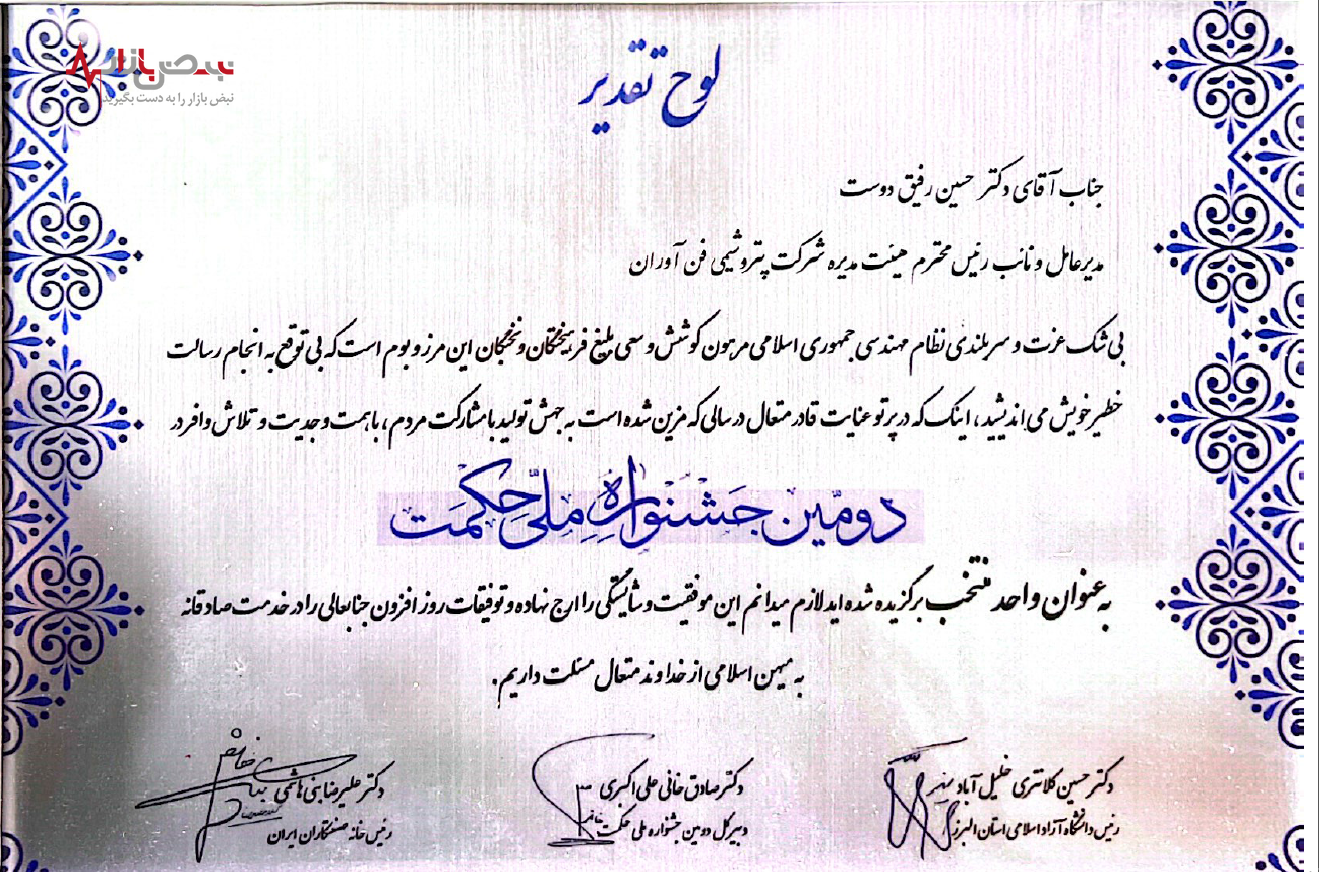 نبض بازار
نبض بازار را به دست بگیرید
لوح تقدیر
جناب آقای دکتر حسین رفیق دوست
مدیرعامل و نائب رئیس محترم هیئت مدیره شرکت پتروشیمی فن آوران
بی شک عزت و سربلندی نظام مهندسی جمهوری اسلامی مرهون کوشش و سعی بلیغ فرهیختگان و نخبگان این مرز و بوم است که بی توقع به انجام رسالت
خطیر خویش می اندیشید، اینک که در پرتو عنایت قادر متعال در سالی که مزین شده است به جهش تولید با مشارکت مردم، با همت و جدیت و تلاش وافر در
دومین جشنواره ملی حکمت
به عنوان واحد منتخب برگزیده شده اید لازم میدانم این موفقیت و شایستگی را ارج نهاده و توفیقات روز افزون جنابعالی را در خدمت صادقانه
به میهن اسلامی از خداوند متعال مسئلت داریم.
دکتر حسین کلانتری خلیل آباد
رئیس دانشگاه آزاد اسلامی استان البرز
دکتر صادق خانی علی اکبری
دبیر کل دومین جشنواره ملی حکمت
دکتر علیرضا بنی هاشمی
رئیس خانه صنعتکاران ایران